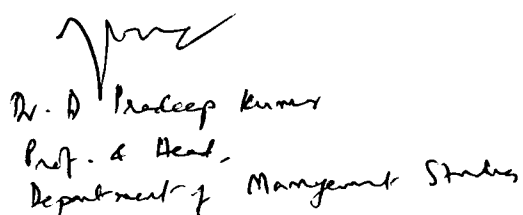 Dr. D Pradeep Kumar
Prof. & Head,
Department of Management Studies